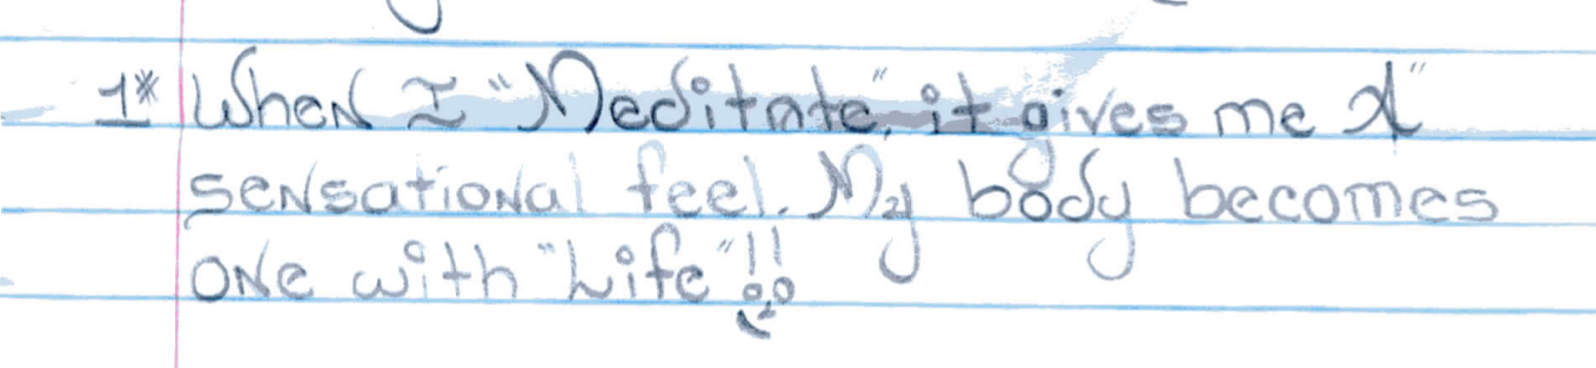 1* When I "Meditate", it gives me A"
sensational feel. My body becomes
one with "Life"!!